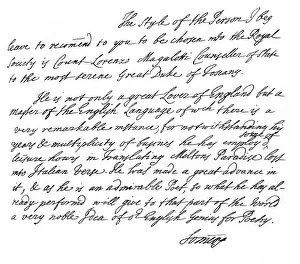 The Style of the Person I beg
leave to recomend to you to be chosen into the Royal
Society is Count Lorenzo Magalotti Counseller of State
to the most serene Great Duke of Tuscany.
He is not only a great Lover of England but a
master of the English Language of wch there is a
very remarkable instance, for notwithstanding his
years & multiplicity of busines he has employ'd
leisure hours in translating Miltons Paradise lost
into Italian verse. He was made a great advance in
it, & as he is an admirable Poet, so what he has al-
ready performd will give to that part of the World
a very noble Idea of or English Genius for Poetry.